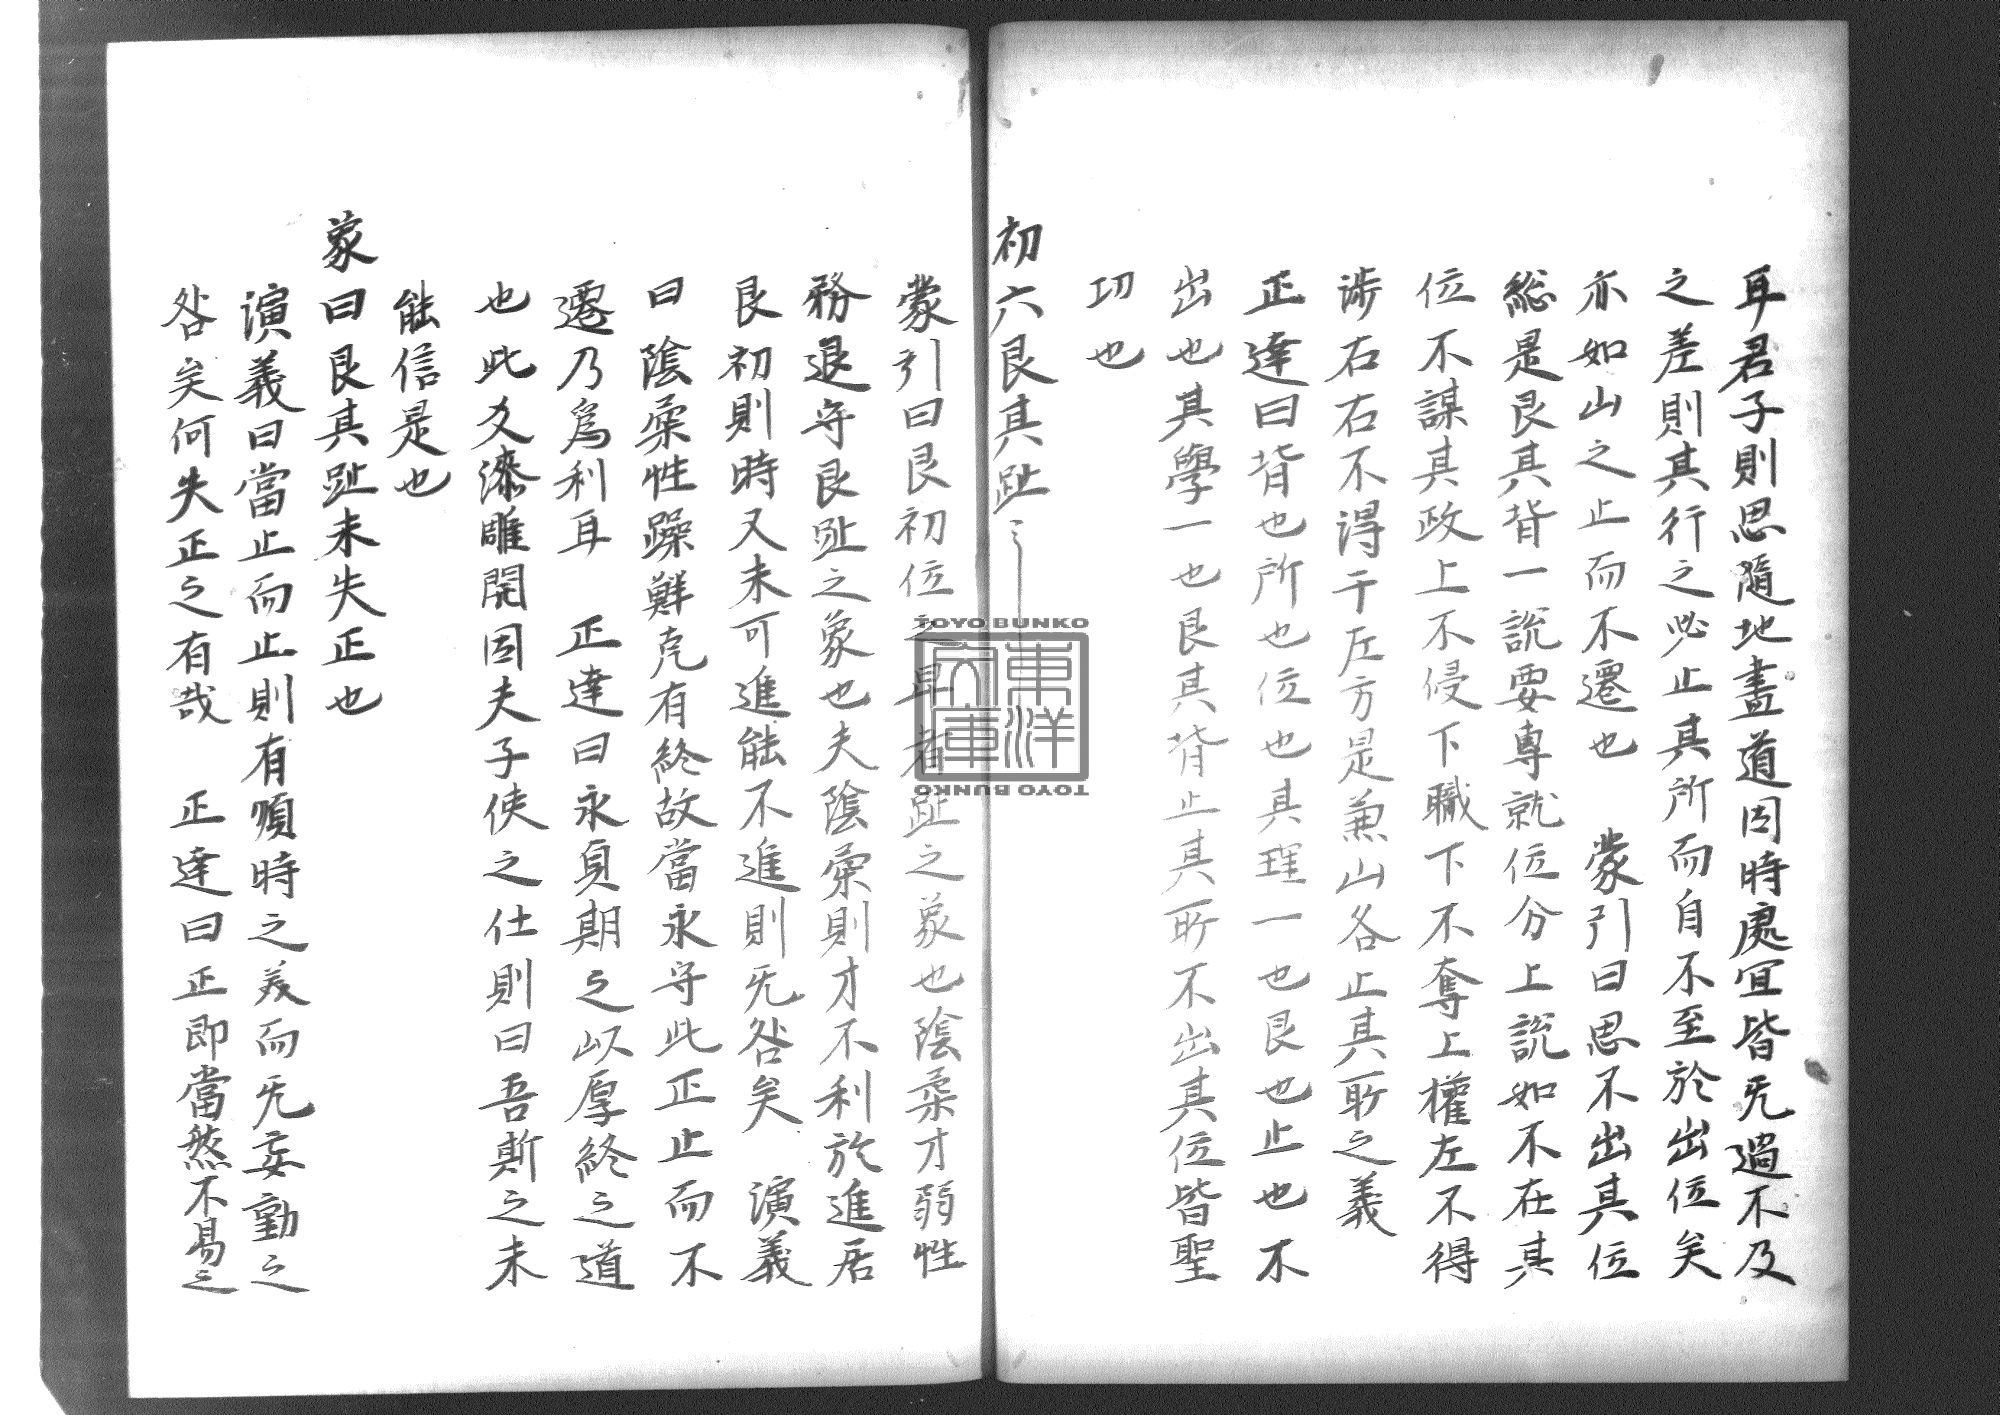 耳君子則思隨地盡道因時處宜皆旡過不及
之差則其行之必止其所而自不至於出位矣
亦如山之止而不遷也　蒙引曰思不出其位
総是艮其背一說要專就位分上說如不在其
位不謀其政上不侵下職下不奪上權左不得
涉右右不得干左方是兼山各止其所之義
正達曰背也所也位也其理一也艮也止也不
出也其學一也艮其背止其所不出其位皆聖
功也
初六艮其趾
蒙引曰艮初位之卑者趾之象也陰柔才弱性
務退守艮趾之象也夫陰柔則才不利於進居
艮初則時又未可進能不進則旡咎矣　演義
曰陰柔性躁鮮克有終故當永守此正止而不
遷乃爲利耳　正達曰永貞期之以厚終之道
也此爻漆雕開因夫子使之仕則曰吾斯之未
能信是也
象曰艮其趾未失正也
演義曰當止而止則有順時之美而旡妄動之
咎矣何失正之有哉　正達曰正即當然不易之
TOYO BUNKO
東洋文庫
TOYO BUNKO